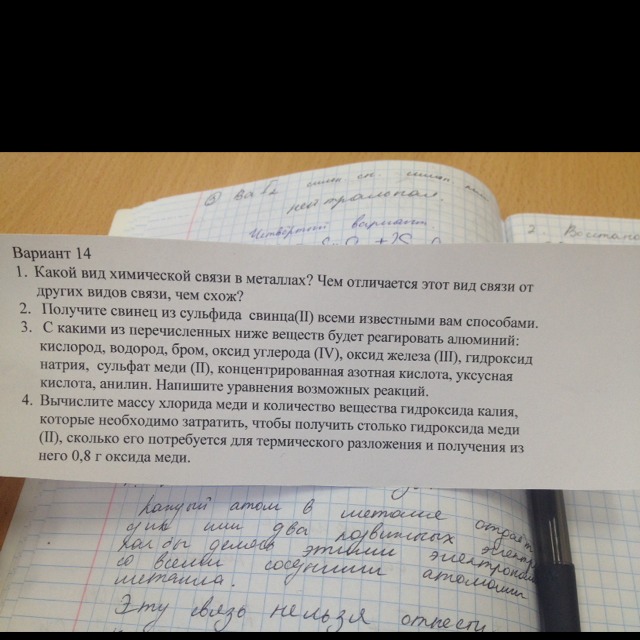 нейтральная.
Четвертый вариант
2. Восстано
Вариант 14
1. Какой вид химической связи в металлах? Чем отличается этот вид связи от
других видов связи, чем схож?
2. Получите свинец из сульфида свинца(II) всеми известными вам способами.
3. С какими из перечисленных ниже веществ будет реагировать алюминий:
кислород, водород, бром, оксид углерода (IV), оксид железа (III), гидроксид
натрия, сульфат меди (II), концентрированная азотная кислота, уксусная
кислота, анилин. Напишите уравнения возможных реакций.
4. Вычислите массу хлорида меди и количество вещества гидроксида калия,
которые необходимо затратить, чтобы получить столько гидроксида меди
(II), сколько его потребуется для термического разложения и получения из
него 0,8 г оксида меди.
Каждый атом в металле отдает
один или два подвижных электро
как бы делясь этими электронами
со всеми соседними атомами
металла.
Эту связь нельзя отнести